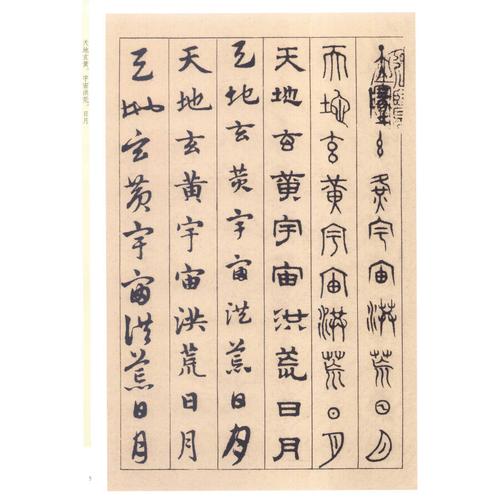 天地玄黃宇宙洪荒日月
天地玄黃宇宙洪荒日月
天地玄黃宇宙洪荒日月
天地玄黃宇宙洪荒日月
天地玄黃宇宙洪荒日月
天地玄黃宇宙洪荒日月
天地玄黄，宇宙洪荒。日月
5